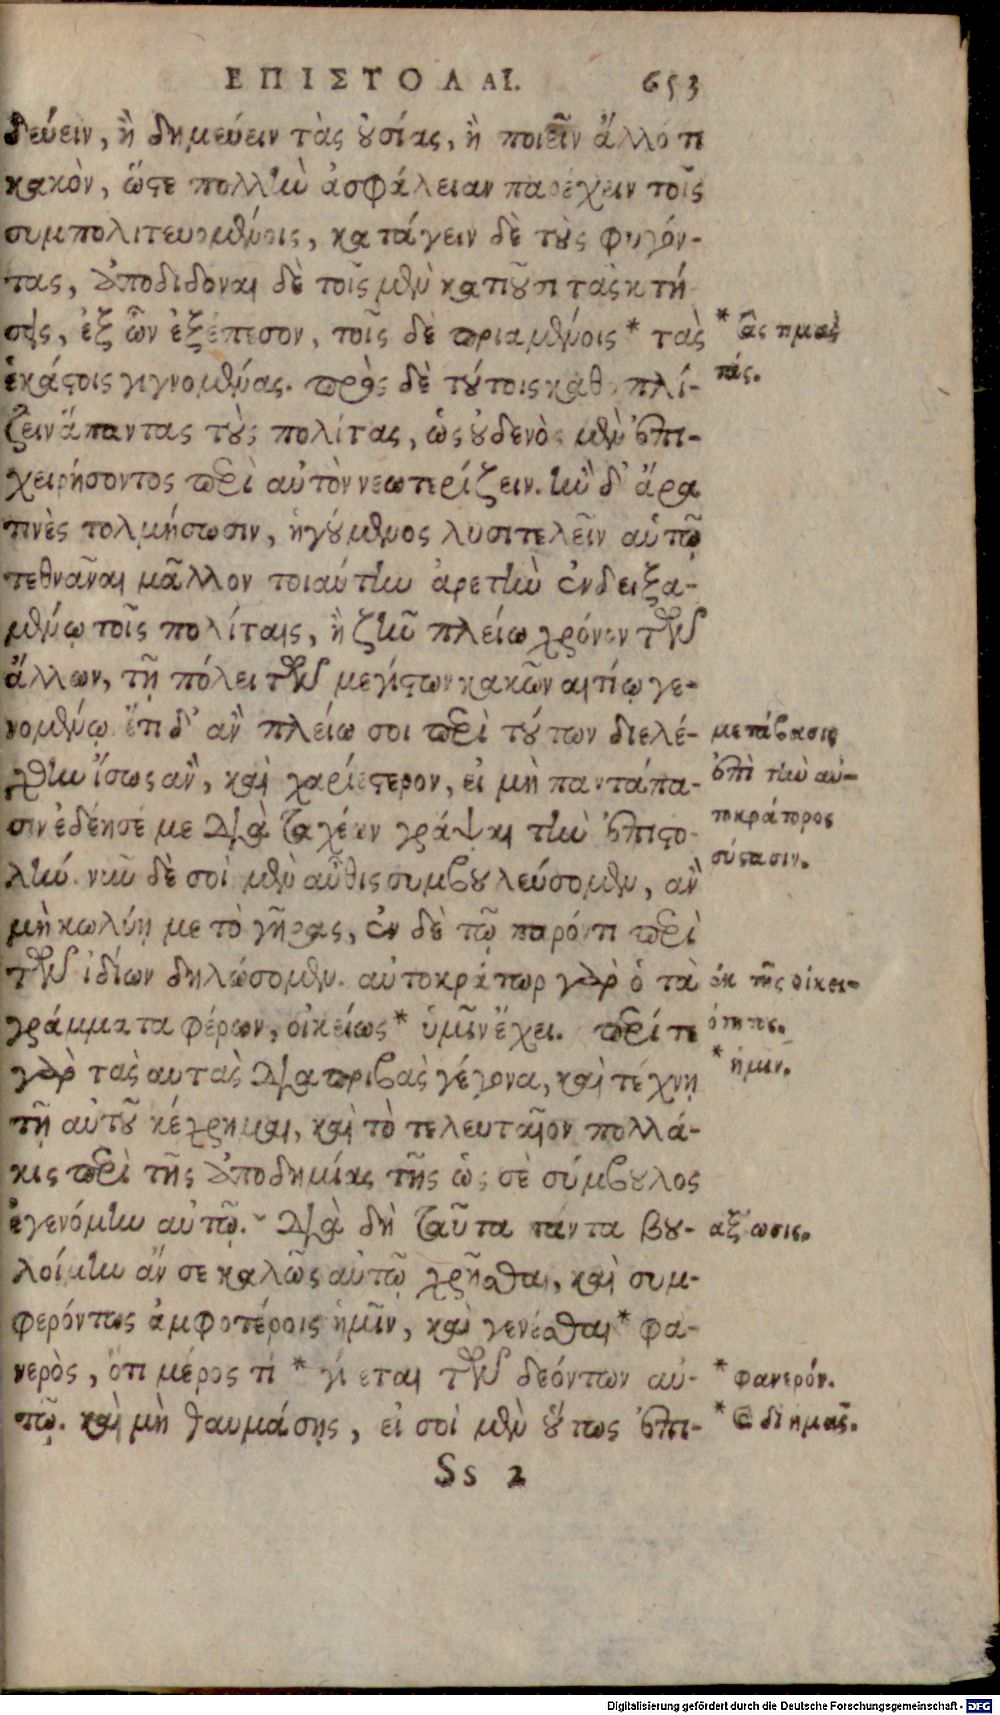 ΕΠΙΣΤΟΛΑΙ. 653
δεύειν, ἢ δημεύειν τὰς οὐσίας, ἢ ποιεῖν ἄλλό τι
κακὸν, ὥςε πολλὴν ἀσφάλειαν παρέχειν τοῖς
συμπολιτευομένοις, κατάγειν δὲ τοὺς φυγόν-
τας, ἀποδιδόναι δὲ τοῖς μὲν κατιοῦσι τὰς κτή-
σεις, ἐξ ὧν ἐξέπεσον, τοῖς δὲ πριαμένοις * τὰς
ἑκάςοις γιγνομένας. πρὸς δὲ τούτοις καθοπλί-
ζειν ἅπαντας τοὺς πολίτας, ὡς οὐδενὸς μὲν ἐπι-
χειρήσοντος περὶ αὐτὸν νεωτερίζειν. ἢν δ' ἄρα
τινὲς τολμήσωσιν, ἡγούμενος λυσιτελεῖν αὑτῷ
τεθνᾶναι μᾶλλον τοιαύτην ἀρετὴν ἐνδειξα-
μένῳ τοῖς πολίταις, ἢ ζῆν πλείω χρόνον τῶν
ἄλλων, τῇ πόλει τῶν μεγίςων κακῶν αἰτίῳ γε-
νομένῳ. ἔτι δ' ἂν πλείω σοι περὶ τούτων διελέ-
χθην ἴσως ἂν, καὶ χαριέςερον, εἰ μὴ παντάπα-
σιν ἐδέησέ με διὰ ταχέων γράψαι τὴν ἐπιςο-
λήν. νῦν δὲ σοὶ μὲν αὖθις συμβουλεύσομεν, ἂν
μὴ κωλύῃ με τὸ γῆρας, ἐν δὲ τῷ παρόντι περὶ
τῶν ἰδίων δηλώσομεν. αὐτοκράτωρ γὰρ ὁ τὰ
γράμματα φέρων, οἰκείως * ὑμῖν ἔχει. περί τε
γὰρ τὰς αυτὰς διατριβὰς γέγονα, καὶ τέχνῃ
τῇ αὐτοῦ κέχρημαι, καὶ τὸ τελευταῖον πολλά-
κις περὶ τῆς ἀποδημίας τῆς ὡς σὲ σύμβουλος
ἐγενόμην αὐτῷ. Διὰ δὴ ταῦτα πάντα βου-
λοίμην ἄν σε καλῶς αὐτῷ χρῆσθαι, καὶ συμ-
φερόντως ἀμφοτέροις ἡμῖν, καὶ γενέσθαι * φα-
νερὸς, ὅτι μέρος τὶ * γίεται τῶν δεόντων αὐ-
τῷ. καὶ μὴ θαυμάσῃς, εἰ σοὶ μὲν οὕτως ἐπι-
Ss 2
* ἃς τιμὰς
τάς.
μετάβασις
ἐπὶ τὴν αὐ-
τοκράτορος
σύςασιν.
ἐκ τῆς οἰκει-
ότητος.
* ἡμῖν.
ἀξίωσις.
* φανερόν.
* καὶ δι' ἡμᾶς.
Digitalisierung gefördert durch die Deutsche Forschungsgemeinschaft - DFG